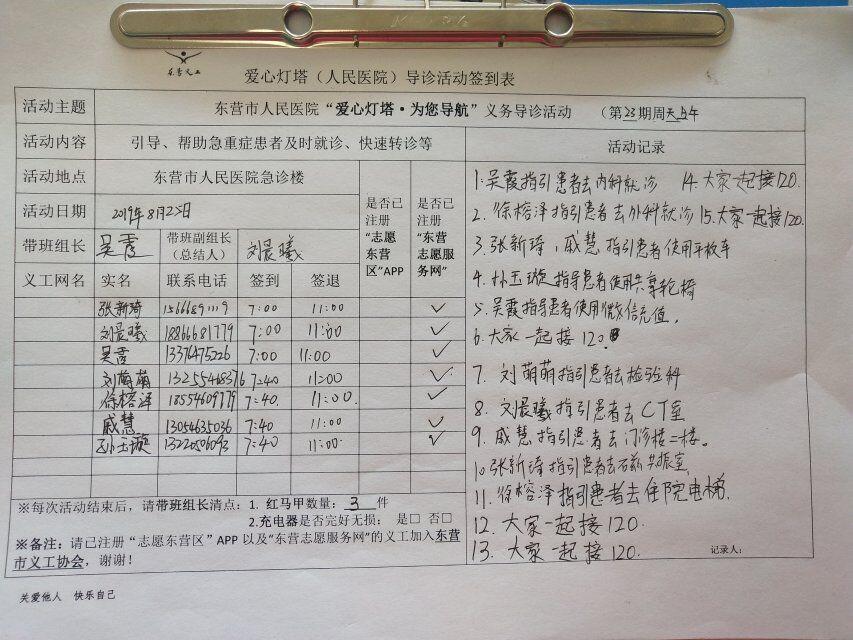 东营义工
爱心灯塔（人民医院）导诊活动签到表
活动主题 东营市人民医院“爱心灯塔·为您导航”义务导诊活动 （第23期周天上午
活动内容 引导、帮助急重症患者及时就诊、快速转诊等 活动记录
活动地点 东营市人民医院急诊楼
活动日期 2019年8月25日
带班组长 吴霞 带班副组长（总结人） 刘晨曦
是否已注册“志愿东营区”APP
是否已注册“东营志愿服务网”
义工网名 实名 联系电话 签到 签退
张新琦 15666891119 7:00 11:00 ✓
刘晨曦 18866681779 7:00 11:00 ✓
吴霞 13376475226 7:00 11:00 ✓
刘萌萌 13255468376 7:40 11:00 ✓
徐榕泽 18554609779 7:40. 11:00. ✓
戚慧 13054635036 7:40 11:00 ✓
孙玉璇 13220506093 7:40 11:00 ✓
※每次活动结束后，请带班组长清点：1. 红马甲数量：3 件
2.充电器是否完好无损： 是□ 否□
※备注：请已注册“志愿东营区”APP 以及“东营志愿服务网”的义工加入东营
市义工协会，谢谢！
1.吴霞指引患者去内科就诊 14.大家一起接120.
2.徐榕泽指引患者去外科就诊 15.大家一起接120.
3.张新琦，戚慧指引患者使用平板车
4.孙玉璇指导患者使用共享轮椅
5.吴霞指导患者使用微信充值。
6.大家一起接120.
7.刘萌萌指引患者去检验科
8.刘晨曦指引患者去CT室
9.戚慧指引患者去门诊楼二楼。
10.张新琦指引患者去核磁共振室
11.徐榕泽指引患者去住院电梯.
12.大家一起接120.
13.大家一起接120.
记录人：
关爱他人 快乐自己